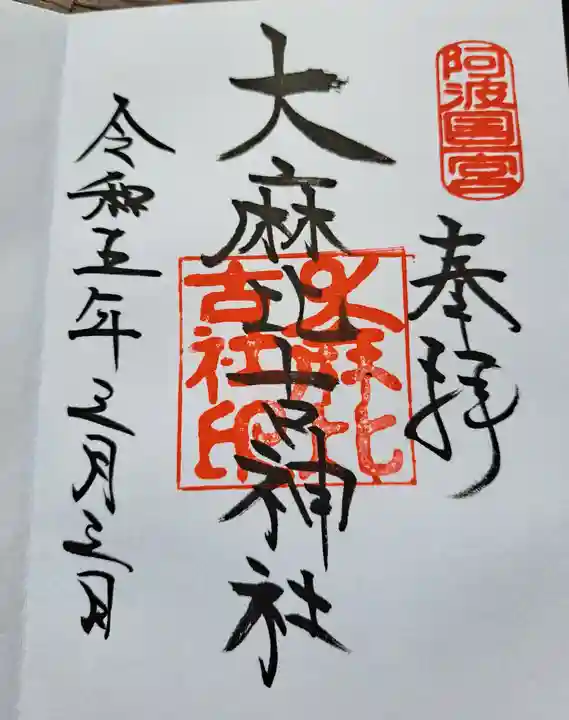 阿波國一宮
奉拝
大麻比古神社
大麻比古社印
令和五年三月三日